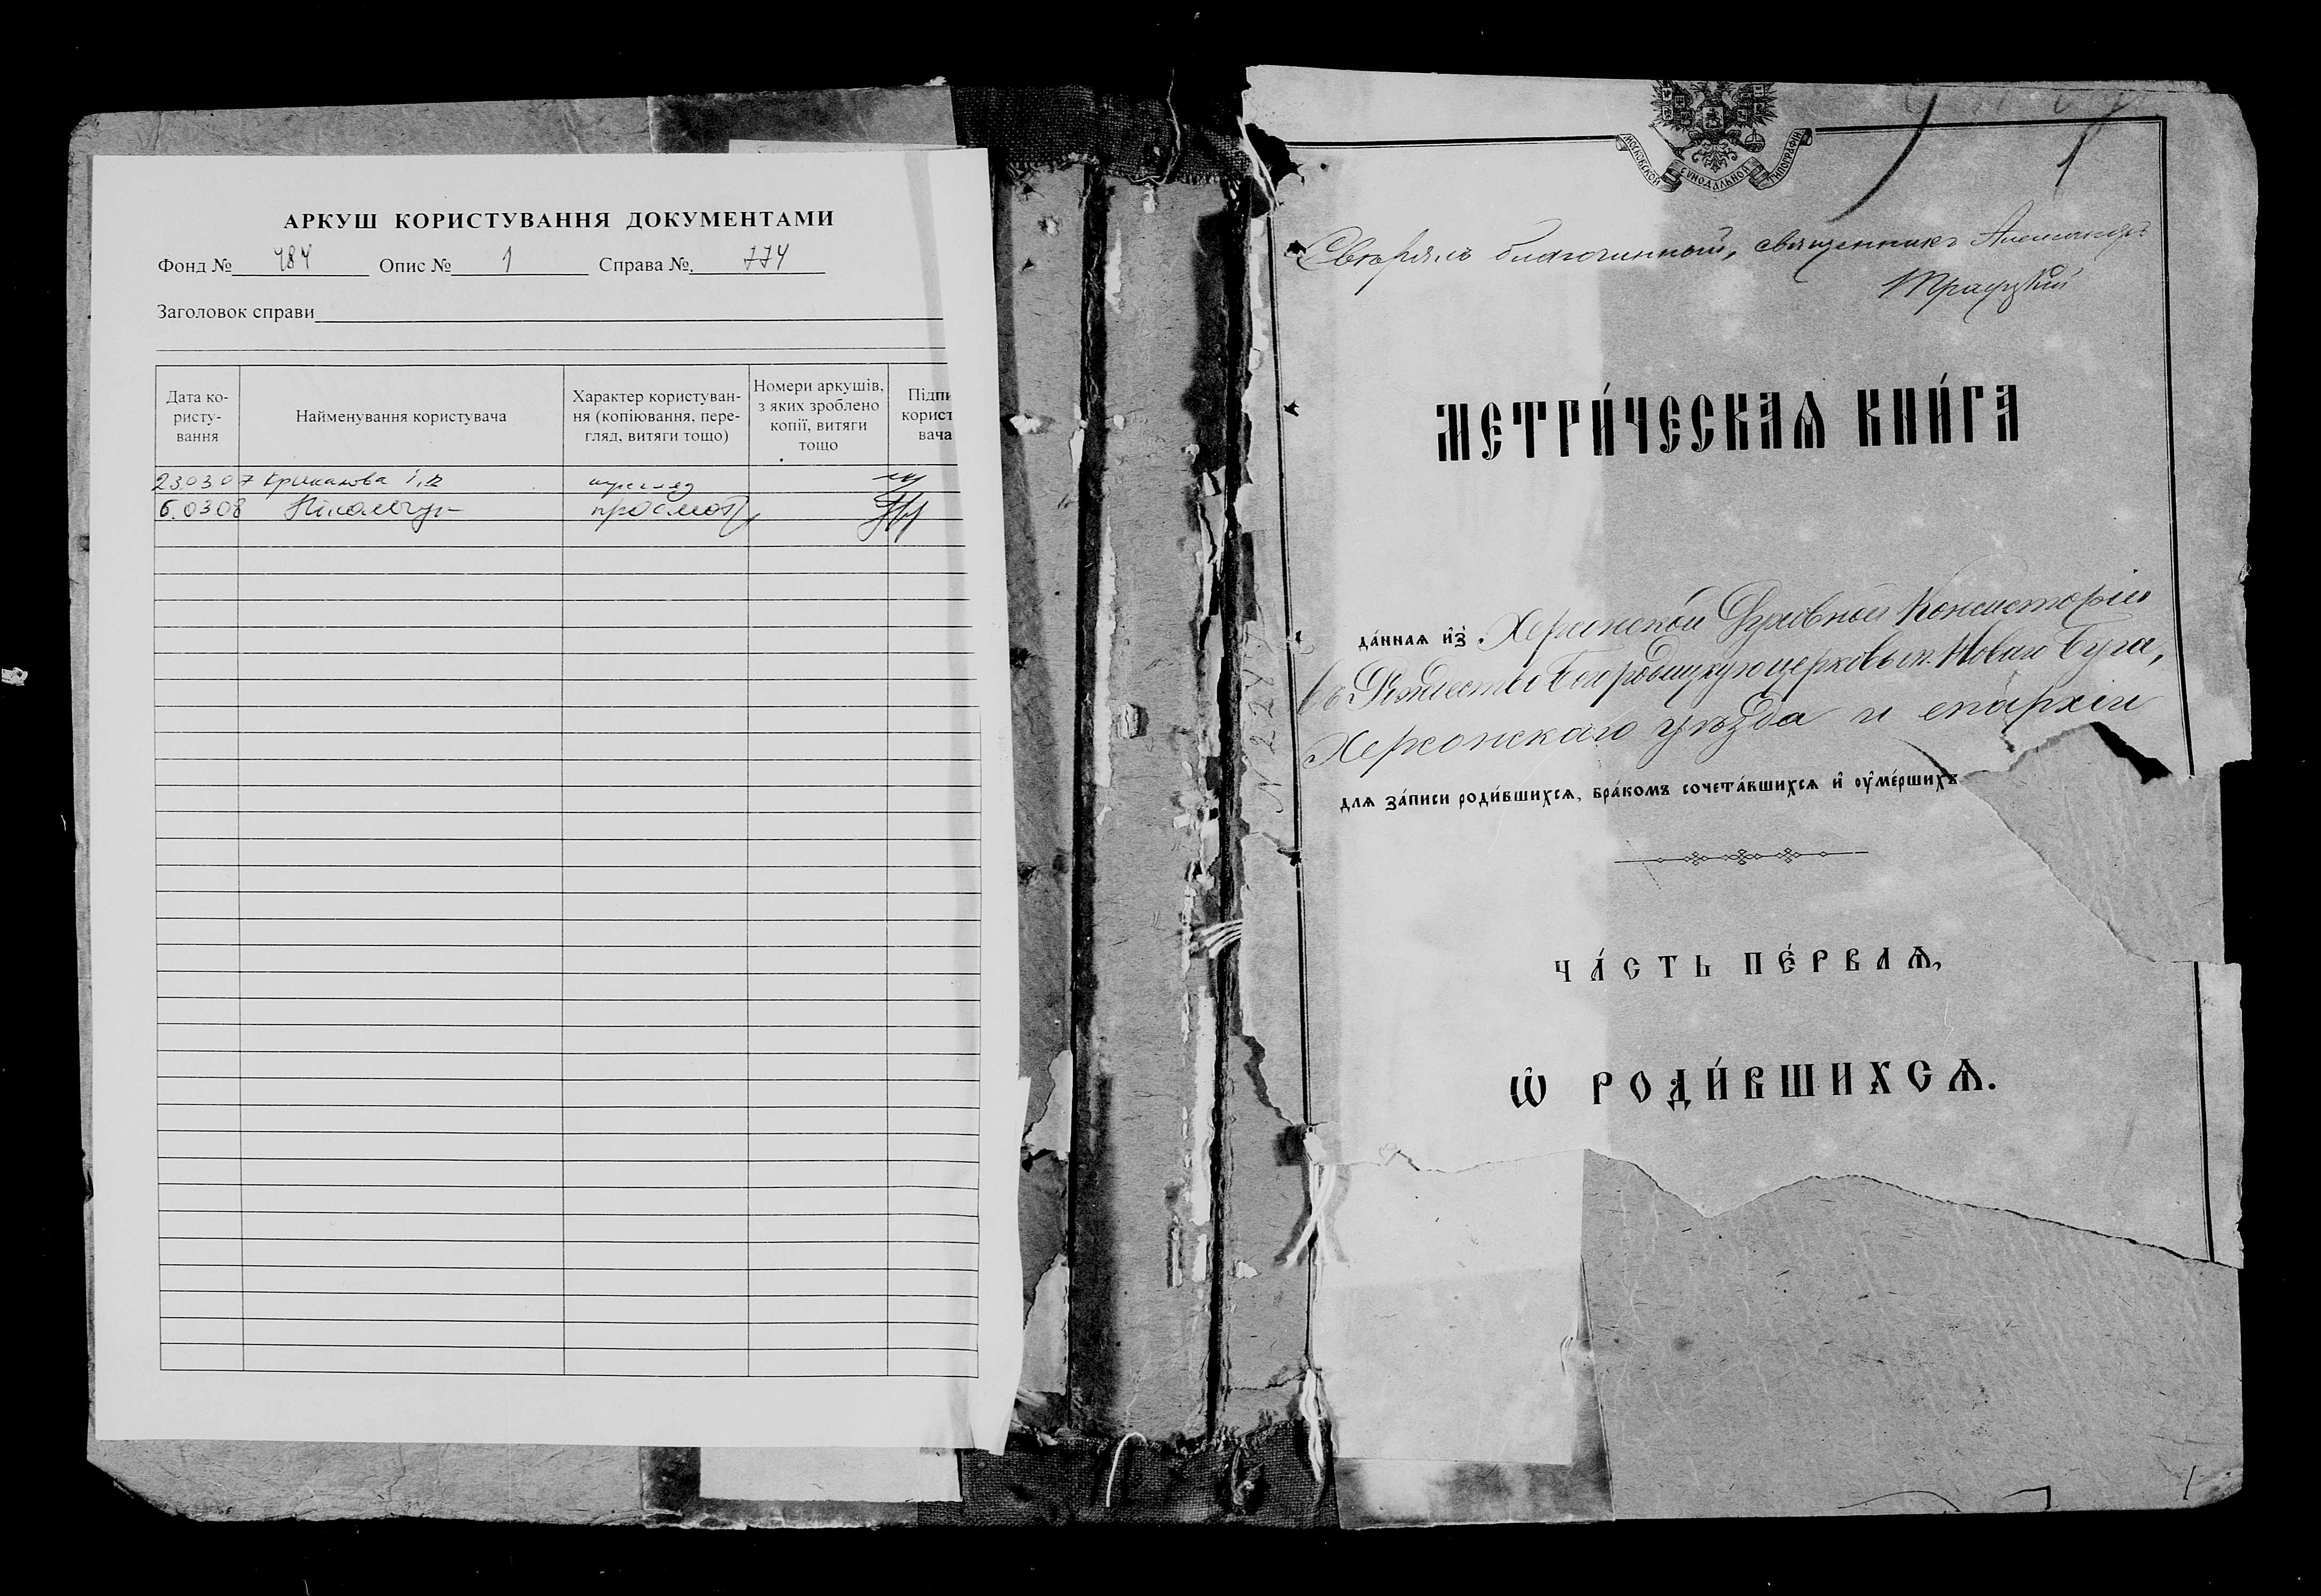 АРКУШ КОРИСТУВАННЯ ДОКУМЕНТАМИ
Фонд № 484 Опис № 1 Справа №. 774
Заголовок справи
Дата ко-
ристу-
вання
Найменування користувача
Характер користуван-
ня (копіювання, пере-
гляд, витяги тощо)
Номери аркушів,
з яких зроблено
копії, витяги
тощо
Підпи
корист
вача
23.03.07 перегляд
6.03.08 просмотр
МОСКОВСКОЙ СѴНОДАЛЬНОЙ ТИПОГРАФІИ
1
Свѣрялъ благочинный, священникъ Александръ
МЕТРИ́ЧЕСКАѦ КНИ́ГА
да́ннаѧ и҆з̾ Херсонской Духовной Консисторіи
въ Рождество Богородицкую церковь м. Новаго Буга,
Херсонскаго уѣзда и епархіи
длѧ за́писи роди́вшихсѧ, бра́комъ сочета́вшихсѧ и҆ оу҆ме́ршихъ
ЧА́СТЬ ПЕ́РВАѦ,
Ѡ҆ РОДИ́ВШИХСѦ.